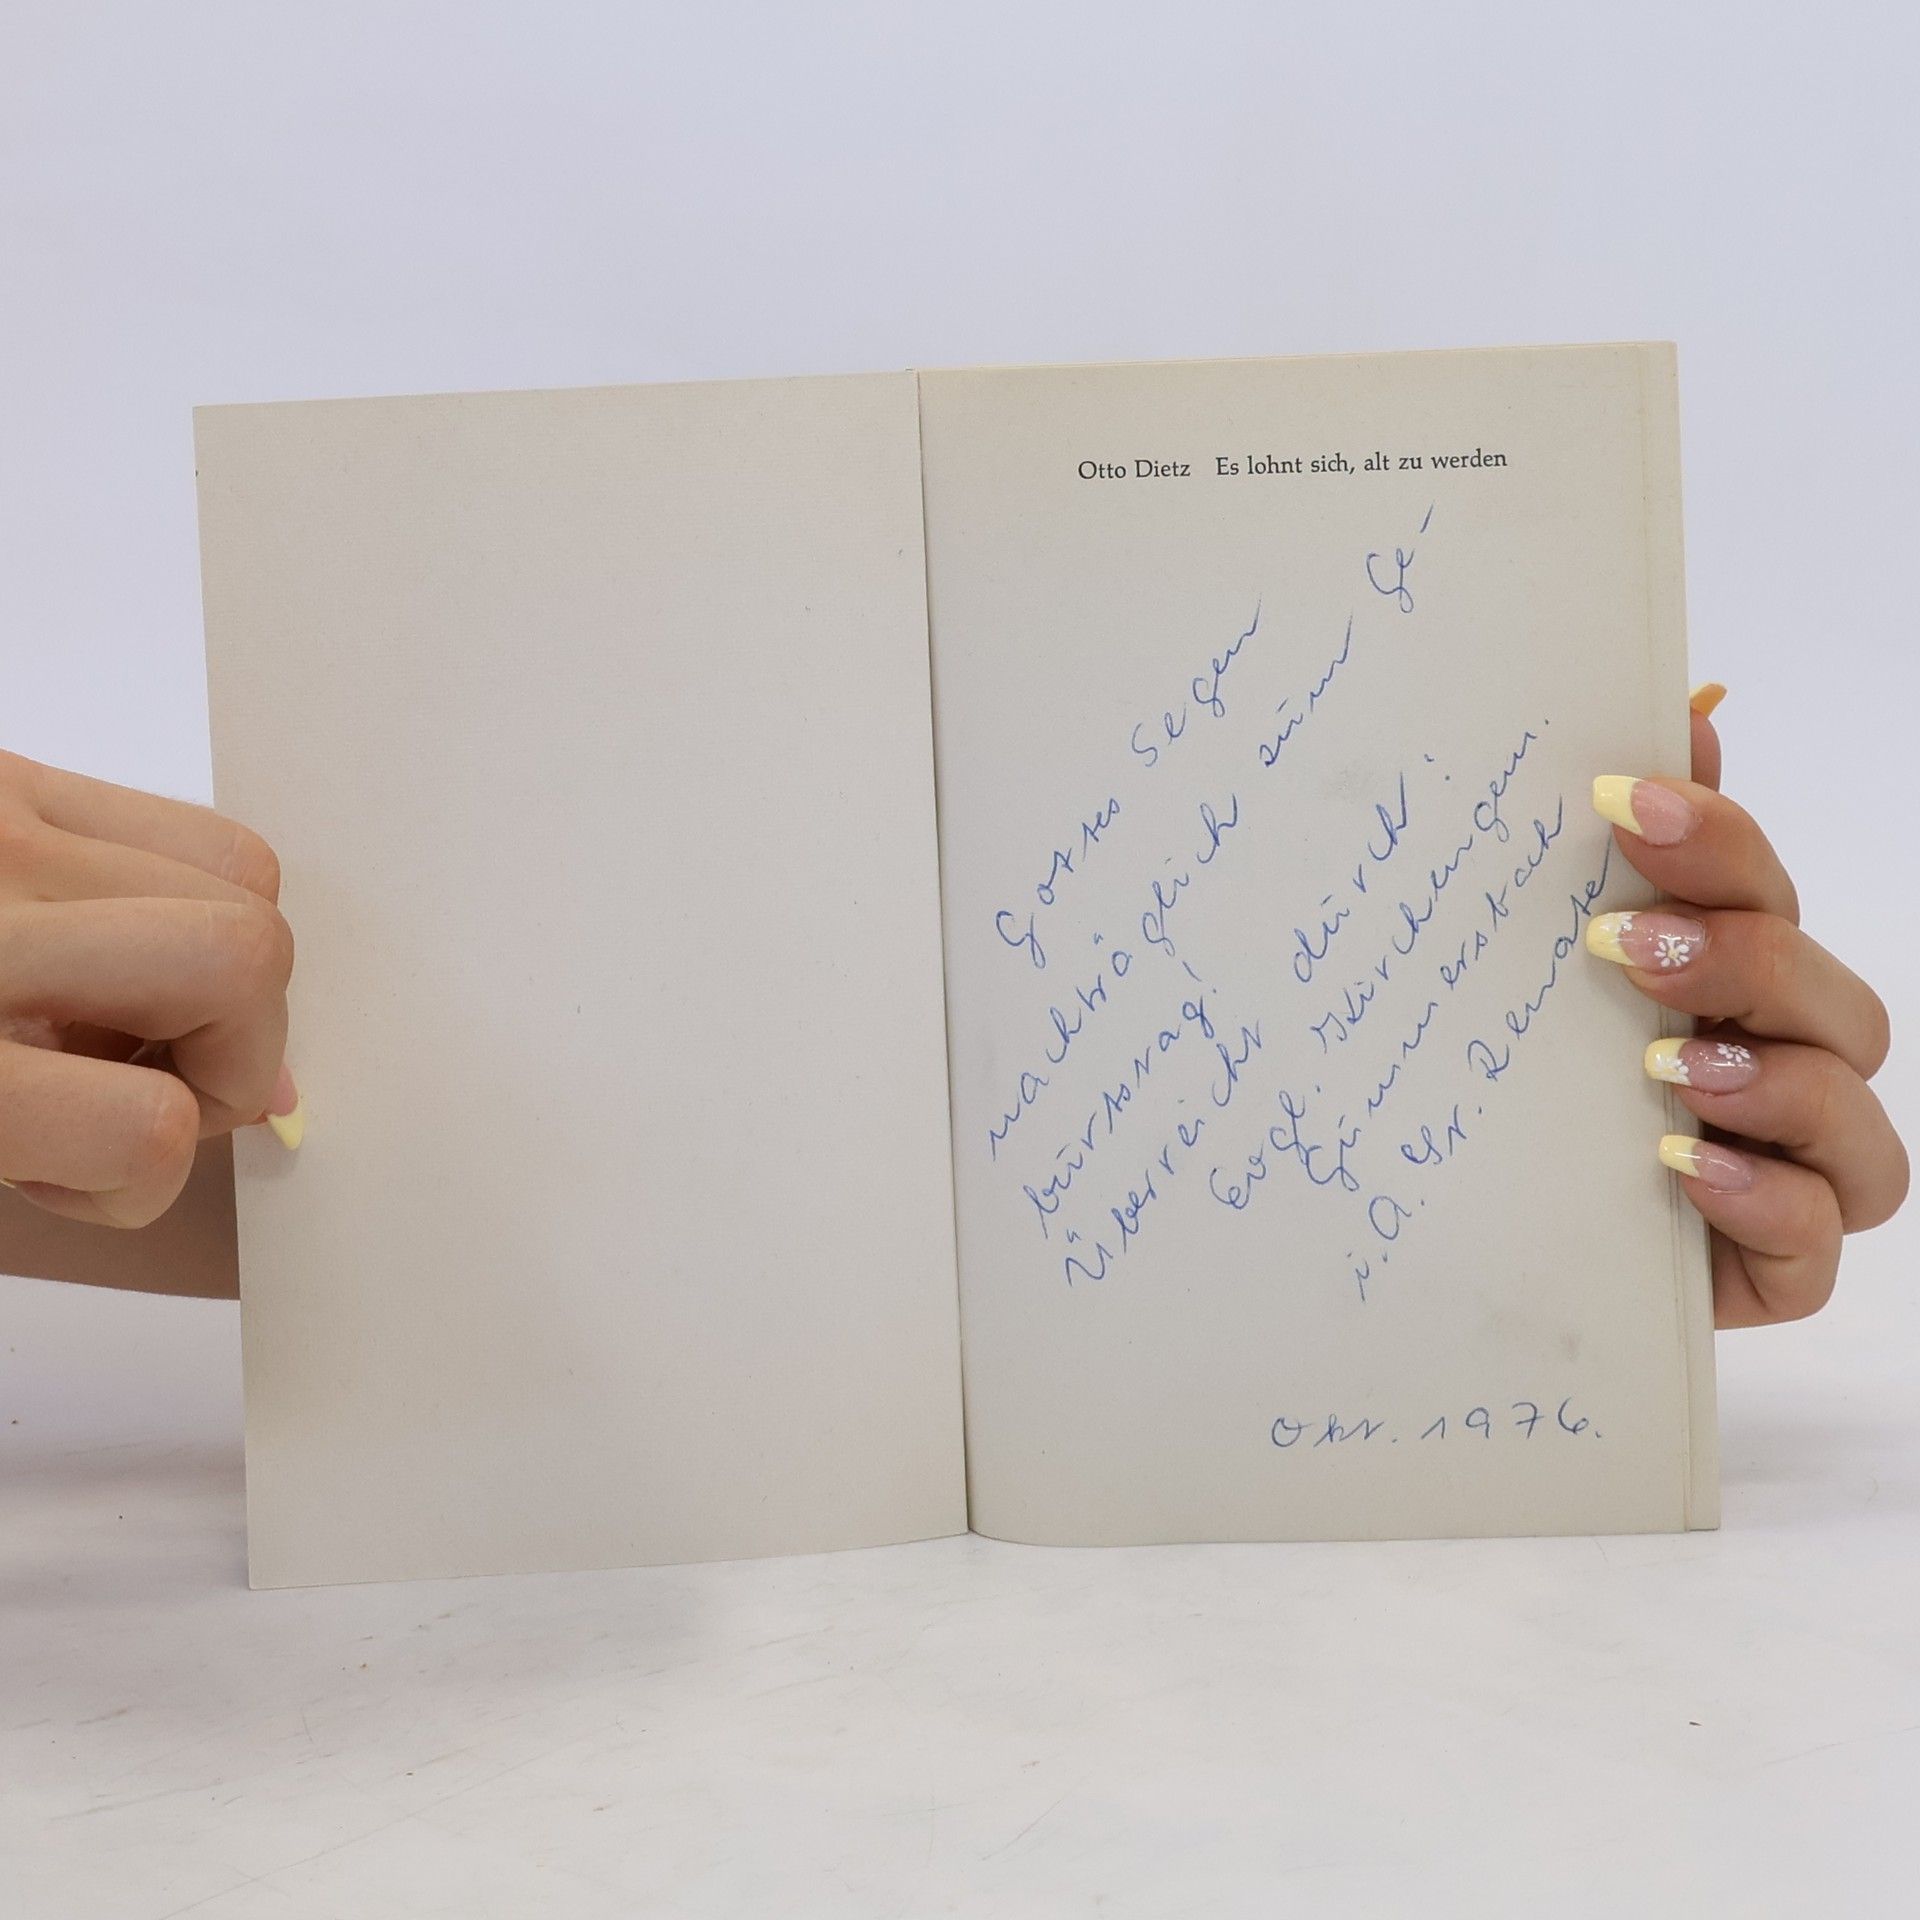 Otto Dietz Es lohnt sich, alt zu werden
Gottes Segen
nachträglich zum Ge-
burtstag!
Überreicht durch:
Evgl. Kirchengem.
Gummersbach
i. A. Sr. Renate
Okt. 1976.